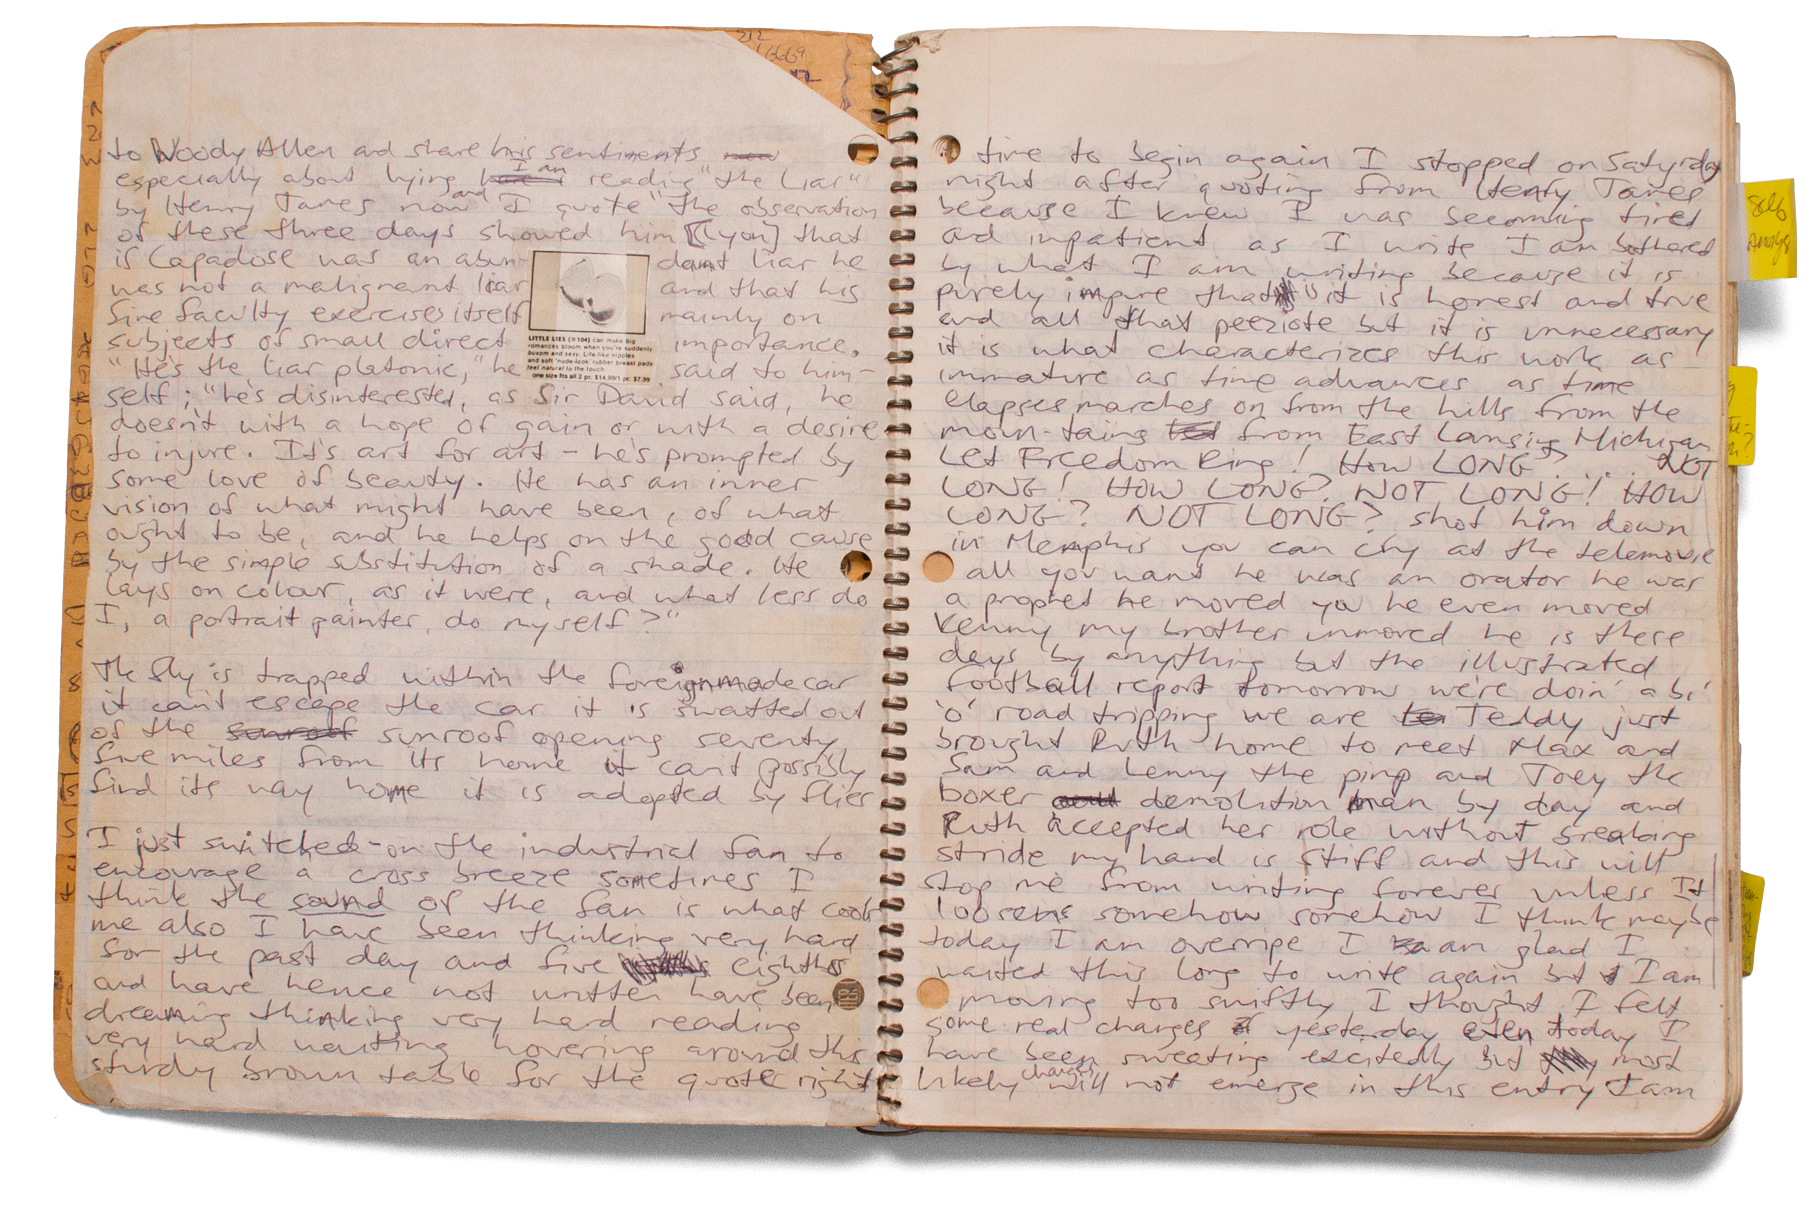 to Woody Allen and share his sentiments
especially about lying I am reading "the Liar"
by Henry James now and I quote "the observation
of these three days showed him [Lyon] that
is Capadose was an abun- dant liar he
was not a malignant liar and that his
fine faculty exercises itself mainly on
subjects of small direct importance.
"He's the liar platonic," he said to him-
self; "he's disinterested, as Sir David said, he
doesn't with a hope of gain or with a desire
to injure. It's art for art - he's prompted by
some love of beauty. He has an inner
vision of what might have been, of what
ought to be, and he helps on the good cause
by the simple substitution of a shade. He
lays on colour, as it were, and what less do
I, a portrait painter, do myself?"
LITTLE LIES (#104) can make big
romances bloom when you're suddenly
buxom and sexy. Life-like nipples
and soft 'nude-look' rubber breast pads
feel natural to the touch.
one size fits all 2 pr. $14.99/1 pr. $7.99
The fly is trapped within the foreignmade car
it can't escape the car it is swatted out
of the sunroof sunroof opening seventy
five miles from its home it cant possibly
find its way home it is adopted by flies
I just switched-on the industrial fan to
encourage a cross breeze sometimes I
think the sound of the fan is what cools
me also I have been thinking very hard
for the past day and five eighths
and have hence not written have been
dreaming thinking very hard reading
very hard waiting hovering around this
sturdy brown table for the quote right
time to begin again I stopped on Saturday
night after quoting from Henry James
because I knew I was becoming tired
and inpatient as I write I am bothered
by what I am writing because it is
purely impure that it is honest and true
and all that peeziote but it is unnecessary
it is what characterizes this work as
immature as time advances as time
elapses marches on from the hills from the
moun-tains from East Lansing Michigan
Let Freedom Ring! How LONG? ... NOT
LONG! HOW LONG? NOT LONG! HOW
LONG? NOT LONG? shot him down
in Memphis you can cry at the telemovie
all you want he was an orator he was
a prophet he moved you he even moved
Kenny my brother unmoved he is these
days by anything but the illustrated
football report tomorrow we're doin' a bi'
'o' road tripping we are Teddy just
brought Ruth home to meet Max and
Sam and Lenny the pimp and Joey the
boxer demolition man by day and
Ruth accepted her role without breaking
stride my hand is stiff and this will
stop me from writing forever unless It
loosens somehow somehow I think maybe
today I am overripe I am glad I
waited this long to write again but I am
moving too swiftly I thought I felt
some real changes yesterday even today I
have been sweating excitedly but most
likely changes will not emerge in this entry I am
Self